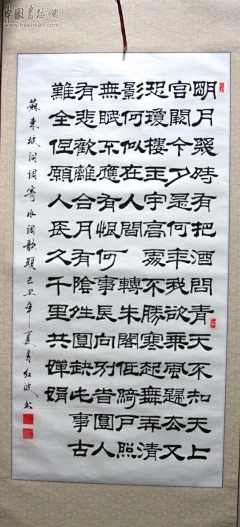 明月幾時有把酒問青天不知天上
宮闕今夕是何年我欲乘風歸去又
恐瓊樓玉宇高處不勝寒起舞弄清
影何似在人間轉朱閣低綺戶照
無眠不應有恨何事長向別時圓人
有悲歡離合月有陰晴圓缺此事古
難全但願人長久千里共嬋娟
蘇東坡詞調寄水調歌頭己丑年夏月紅波書